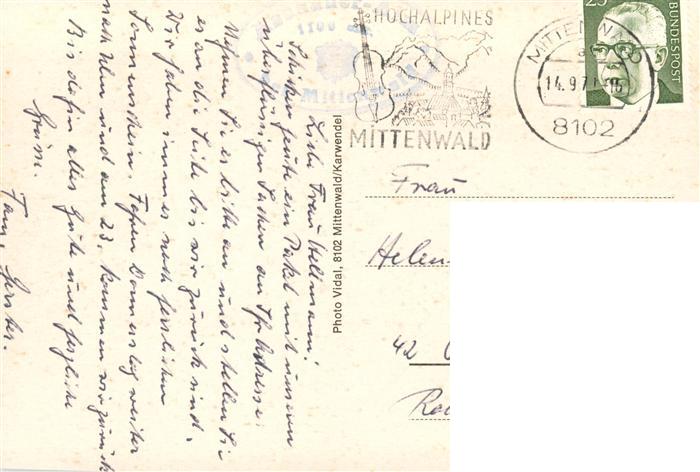 HOCHALPINES
MITTENWALD
MITTENWALD
14.9.71-16
8102
25
BUNDESPOST
1100
Mittenwald
Photo Vidal, 8102 Mittenwald/Karwendel
Frau
Helen
42
Liebe Frau
Schicken heute ein Paket mit unseren
überflüssigen Sachen an Ihre Adresse.
Nehmen Sie es bitte an und stellen Sie
es an die Seite bis wir zurück sind.
Wir haben immer noch herrlichen
Sonnenschein. Fahren Donnerstag weiter
nach Ulm und am 23. kommen wir zurück
Bis dahin alles Gute und herzliche
Grüsse.
Fam.